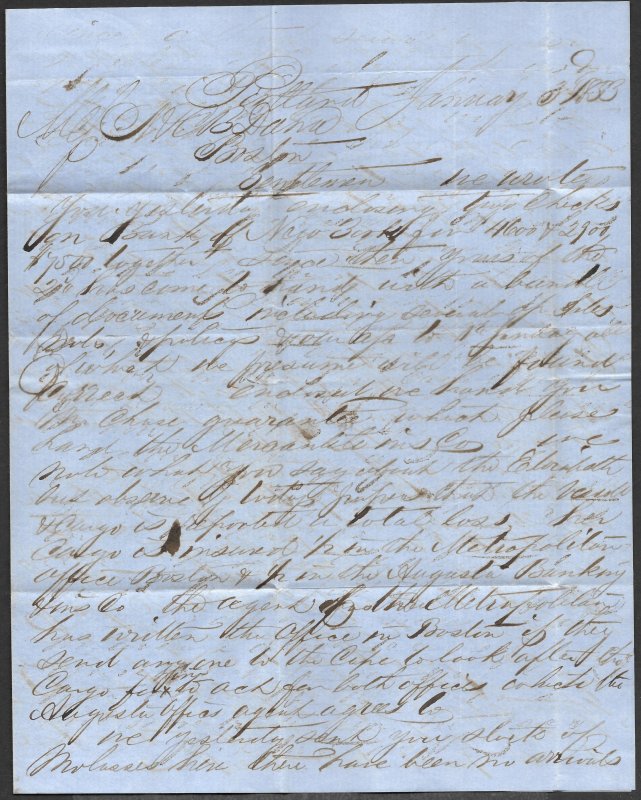 Portland January 3d 1853
Mess N & B Dana
Boston
Gentlemen we wrote
you yesterday enclosing two checks
on Bank of New York for $4600 & 2900
$7500 together Since then yours of the
has come to hand with a bundle
of document including several of
& policy & to 1st January all
of which we presume will be found
correct Enclosed we hand you
Mr Chase guarantee which please
hand the Mercantile ins Co we
note what you say about the Elizabeth
but observe by today's papers that the vessell
& cargo is reported a total loss her
Cargo is insured ½ in the Metropolitan
office Boston & ½ in the Augusta Banking
& ins Co the agent of the Metropolitan
has written the office in Boston if they
send any one to the Cape to look after the
Cargo for him to act for both offices which the
Augusta offices agent agrees to
we yesterday sent you stock of
Molasses here there have been no arrivals